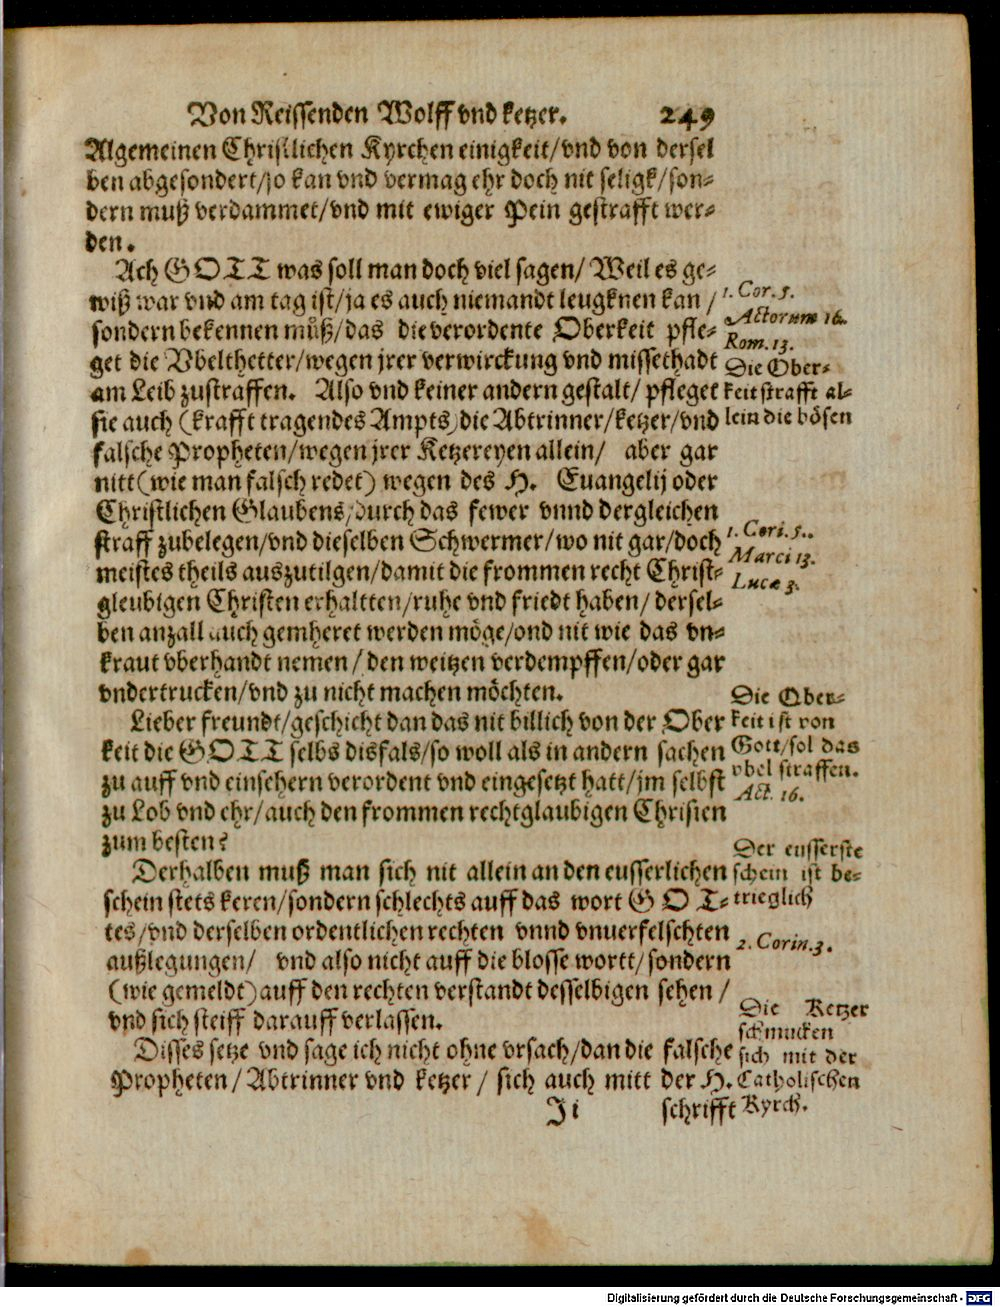 Von Reissenden Wolff vnd ketzer. 249
Algemeinen Christlichen Kyrchen einigkeit/vnd von dersel
ben abgesondert/so kan vnd vermag ehr doch nit seligk/son⸗
dern muß verdammet/vnd mit ewiger Pein gestrafft wer⸗
den.
Ach GOTT was soll man doch viel sagen/ Weil es ge⸗
wiß war vnd am tag ist/ja es auch niemandt leugknen kan /
sondern bekennen muß/das die verordente Oberkeit pfle⸗
get die Vbelthetter/wegen jrer verwirckung vnd missethadt
am Leib zustraffen. Also vnd keiner andern gestalt/ pfleget
sie auch (krafft tragendes Ampts)die Abtrinner/ketzer/vnd
falsche Propheten/wegen jrer Ketzereyen allein/ aber gar
nitt(wie man falsch redet) wegen des H. Euangelij oder
Christlichen Glaubens/durch das fewer vnnd dergleichen
straff zubelegen/vnd dieselben Schwermer/wo nit gar/doch
meistes theils auszutilgen/damit die frommen recht Christ⸗
gleubigen Christen erhaltten/ruhe vnd friedt haben/ dersel⸗
ben anzall auch gemheret werden möge/ond nit wie das vn⸗
kraut vberhandt nemen/den weitzen verdempffen/oder gar
vndertrucken/vnd zu nicht machen möchten.
Lieber freundt/geschicht dan das nit billich von der Ober
keit die GOTT selbs disfals/so woll als in andern sachen
zu auff vnd einsehern verordent vnd eingesetzt hatt/jm selbst
zu Lob vnd ehr/auch den frommen rechtglaubigen Christen
zum besten?
Derhalben muß man sich nit allein an den eusserlichen
schein stets keren/sondern schlechts auff das wort GOT⸗
tes/vnd derselben ordentlichen rechten vnnd vnuerfelschten
außlegungen/ vnd also nicht auff die blosse wortt/sondern
(wie gemeldt)auff den rechten verstandt desselbigen sehen /
vnd sich steiff darauff verlassen.
Disses setze vnd sage ich nicht ohne vrsach/dan die falsche
Propheten/Abtrinner vnd ketzer / sich auch mitt der H.
Ji schrifft
1. Cor. 5.
Actorum 16.
Rom. 13.
Die Ober⸗
keit strafft al⸗
lein die bösen
1. Cori. 5..
Marci 13.
Lucæ 3.
Die Ober⸗
keit ist von
Gott/sol das
vbel straffen.
Act. 16.
Der eusserste
schein ist be⸗
trieglich
2. Corin. 3.
Die Ketzer
schmucken
sich mit der
Catholischen
Kyrch.
Digitalisierung gefördert durch die Deutsche Forschungsgemeinschaft - DFG